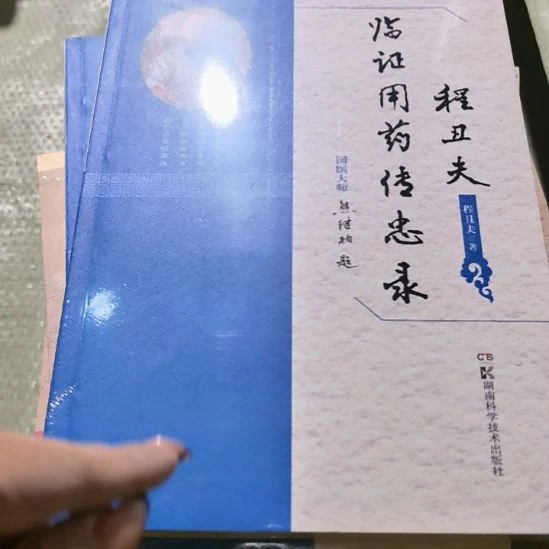 程丑夫
临证用药传忠录
国医大师 熊继柏 题
程丑夫 著
CS
K
湖南科学技术出版社